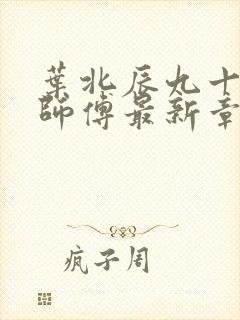 葉北辰九十
師傅最新章
疯子周